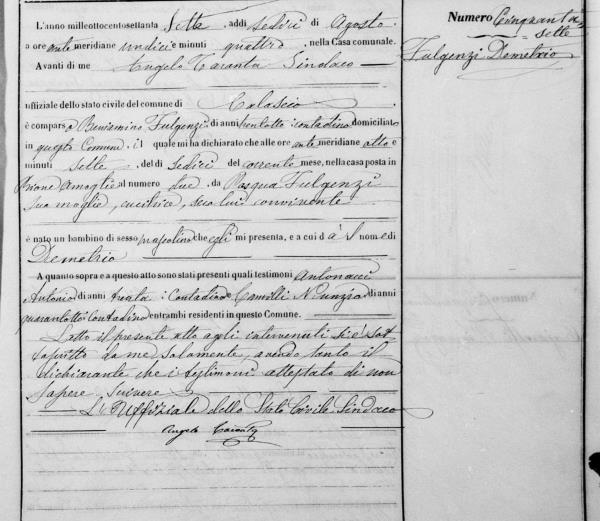 L'anno milleottocentosettanta sette addi sedici di Agosto
a ore ante meridiane undici e minuti quattro, nella Casa comunale.
Avanti di me Angelo Taranta Sindaco
uffiziale dello stato civile del comune di Calascio
è comparso Beniamino Fulgenzi di anni trentotto contadino domiciliato
in questo Comune il quale mi ha dichiarato che alle ore ante meridiane otto e
minuti sette del dì sedici del corrente mese, nella casa posta in
Rione al numero due da Pasqua Fulgenzi
sua moglie, cucitrice, seco lui convivente
è nato un bambino di sesso mascolino che egli mi presenta, e a cui dà il nome di
Demetrio
A quanto sopra e a questo atto sono stati presenti quali testimoni Antonacci
Antonio di anni trenta Contadino e Camilli Nunzio di anni
quarantotto Contadino entrambi residenti in questo Comune.
Letto il presente atto agli intervenuti si è sot-
toscritto da me solamente, avendo tanto il
dichiarante che i testimoni attestato di non
sapere scrivere
L'Uffiziale dello Stato Civile Sindaco
Angelo Taranta
Numero Cinquanta-
sette
Fulgenzi Demetrio